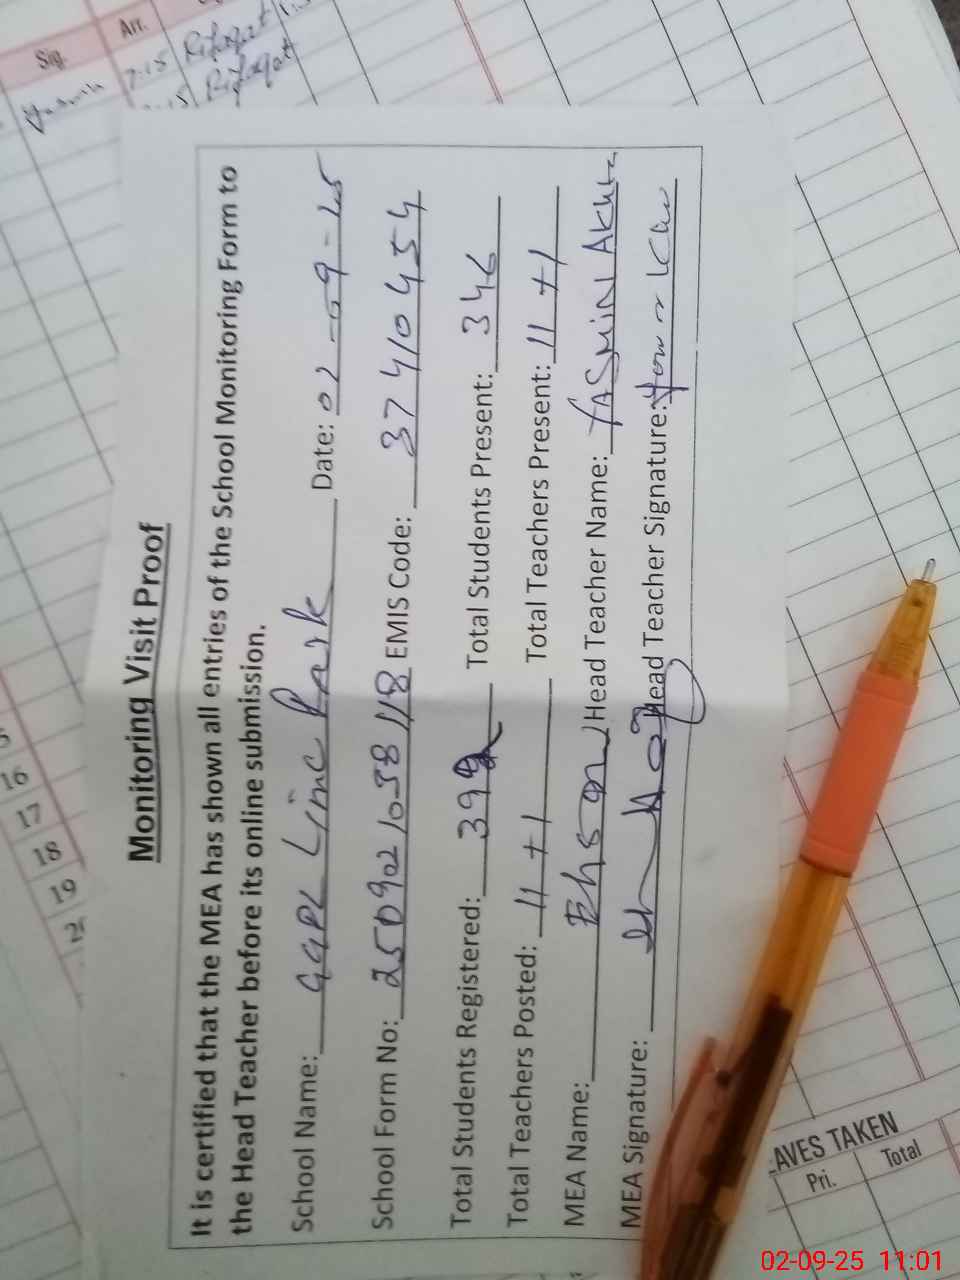 Sig. Arr.
7:15 Rifaqat
:15 Rifaqat
Monitoring Visit Proof
It is certified that the MEA has shown all entries of the School Monitoring Form to
the Head Teacher before its online submission.
School Name: GGPS Line Park Date: 02-09-25
School Form No: 2509021038118 EMIS Code: 37410454
Total Students Registered: 399 Total Students Present: 346
Total Teachers Posted: 11+1 Total Teachers Present: 11+1
MEA Name: Ehsan Head Teacher Name: YASMIN AKhtr
MEA Signature: Head Teacher Signature:
16
17
18
19
AVES TAKEN
Pri. Total
02-09-25 11:01